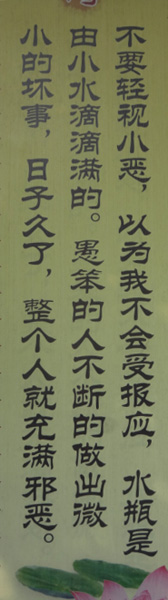 不要轻视小恶，以为我不会受报应，水瓶是
由小水滴滴满的。愚笨的人不断的做出微
小的坏事，日子久了，整个人就充满邪恶。